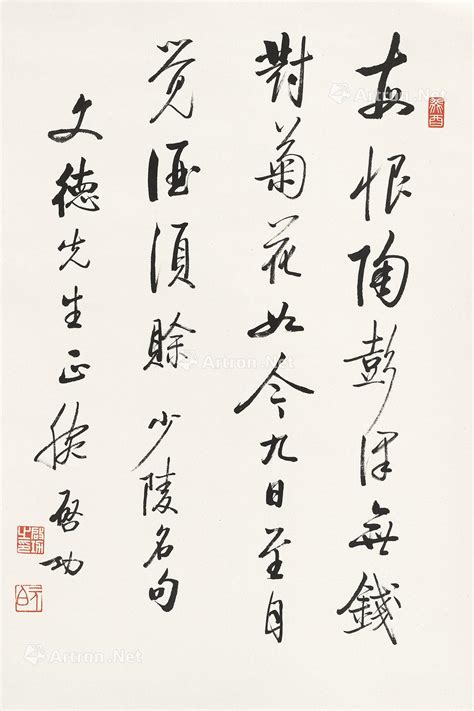 每恨陶彭澤無錢
對菊花如今九日至自
覺酒須賒 少陵名句
文德先生正腕 啓功
癸酉
元白
Artron.Net